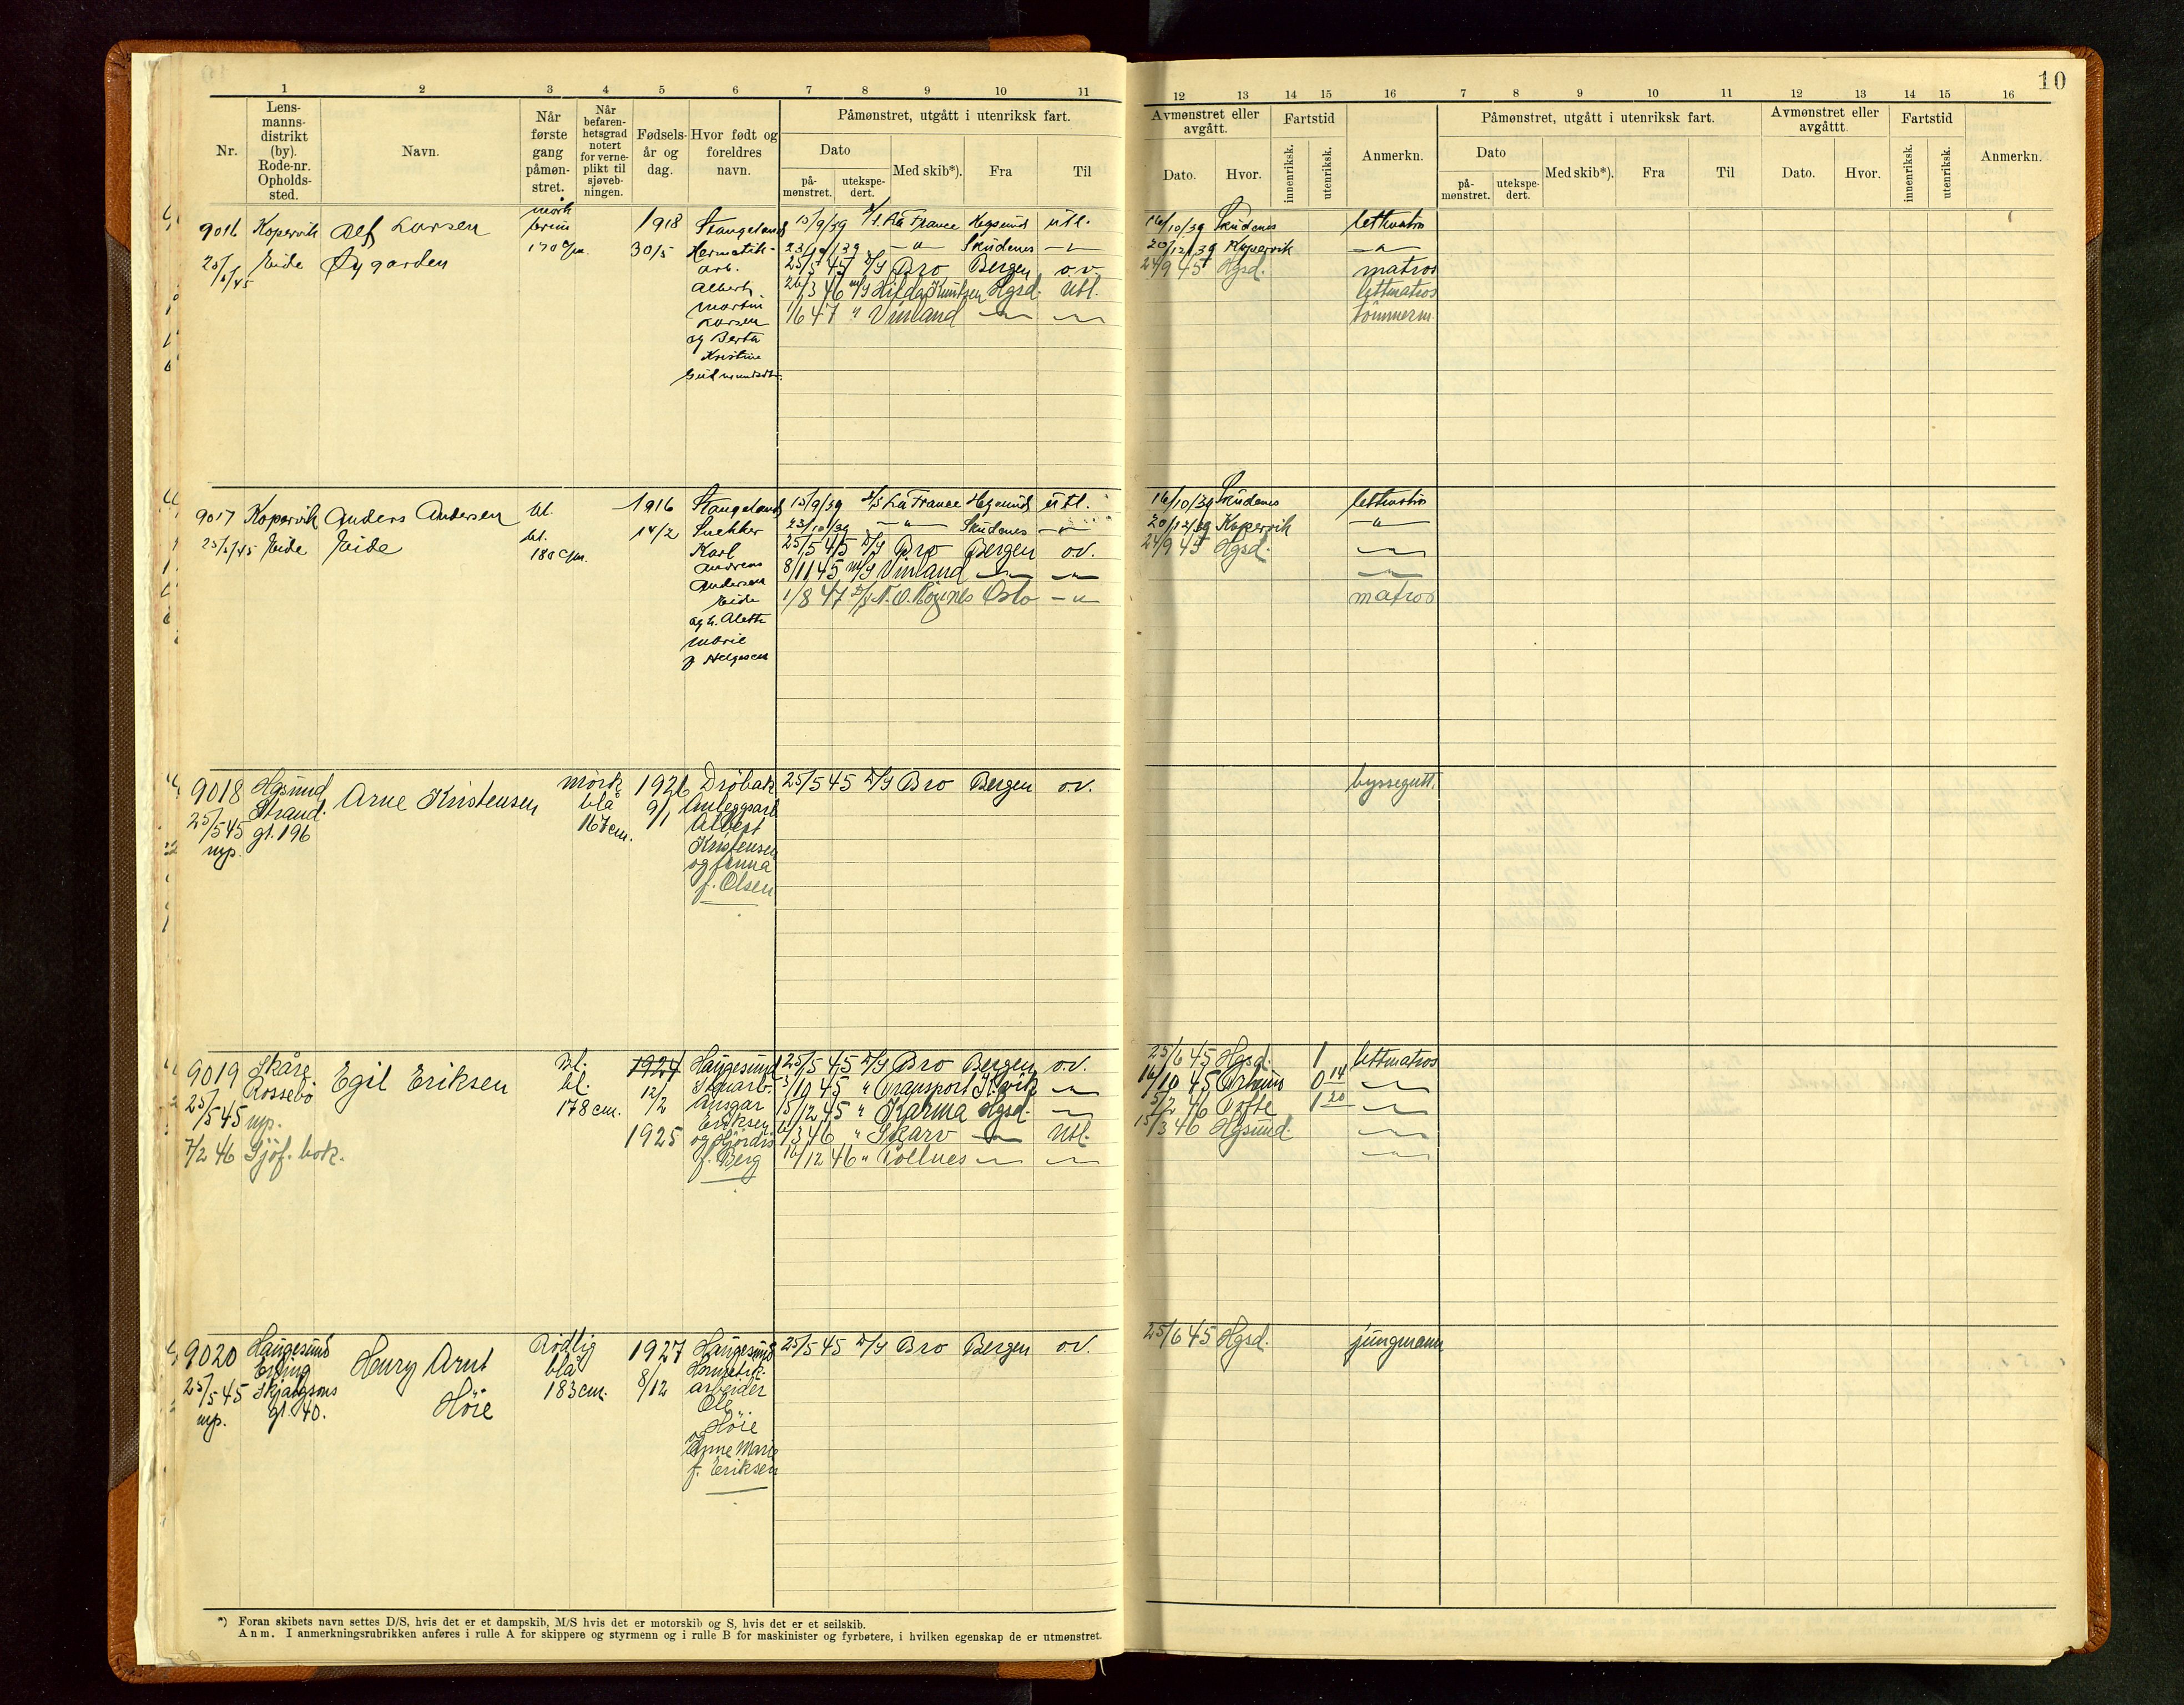 10
1 2 3 4 5 6 7 8 9 10 11
12 13 14 15 16 7 8 9 10 11 12 13 14 15 16
Nr.
Lens-
manns-
distrikt
(by).
Rode-nr.
Opholds-
sted.
Navn.
Når
første
gang
påmøn-
stret.
Når
befaren-
hetsgrad
notert
for verne-
plikt til
sjøveb-
ningen.
Fødsels-
år og
dag.
Hvor født og
foreldres
navn.
Påmønstret, utgått i utenriksk fart.
Dato
på-
mønstret.
utekspe-
dert.
Med skib*).
Fra
Til
Avmønstret eller
avgått.
Dato.
Hvor.
Fartstid
innenriksk.
utenriksk.
Anmerkn.
Påmønstret, utgått i utenriksk fart.
Dato
på-
mønstret.
utekspe-
dert.
Med skib*).
Fra
Til
Avmønstret eller
avgåttt.
Dato.
Hvor.
Fartstid
innenriksk.
utenriksk.
Anmerkn.
9016
Kopervik
Eide
Alf Larsen
Øygarden
mörk
brun
170 c/m.
1918
30/5
Stangeland
Hermetik-
arb.
Albert
Martin
Larsen
og Berta
Kristine
15/9/39 S/S La France Hgsund utl.
23/10/39 —"— Skudenes —"—
25/5 45 D/S Bro Bergen o.v.
26/3 46 m/S Hilda Knutsen Hgsd. Utl.
1/6 47 " Vinland —"— —"—
16/10/39 Skudenes lettmatros
20/12/39 Kopervik —"—
24/9 45 Hgsd. matros
lettmatros
tömmerm.
9017
25/5/45
Kopervik
Eide
Anders Andersen
Eide
bl.
bl.
180 c/m.
1916
14/2
Stangeland
Snekker
Karl
Andreas
Andersen
Eide
og h. Alette
Marie
f. Helgesen
15/9/39 S/S La France Hgsund utl.
23/10/39 —"— Skudenes —"—
25/5 45 D/S Bro Bergen o.v.
8/11 45 m/S Vinland —"— —"—
1/8 47 D/S N. O. Rogenæs Oslo —"—
16/10/39 Skudenes lettmatros
20/12/39 Kopervik —"—
24/9 45 Hgsd. —"—
—"—
matros
9018
25/5 45
mp.
Hgsund
Strand.
gt. 196
Arne Kristensen
mörk
blå
167 cm.
1926
9/1
Dröbak
Anleggsarb
Albert
Kristensen
og Anna
f. Olsen
25/5 45 D/S Bro Bergen o.v.
byssegutt.
9019
25/5 45 mp.
7/2 46 Sjöf. bok.
Skåre
Rossebö
Egil Eriksen
bl.
bl.
178 cm.
1924
12/2
1925
Haugesund
Ansgar
Eriksen
og Hjördis
f. Berg
25/5 45 D/S Bro Bergen o.v.
3/10 45 " Transport K.vik —"—
15/12 45 " Karma Hgsd. —"—
1/3 46 " Skarv —"— Utl.
16/12 46 " Tollnes —"— —"—
25/6 45 Hgsd. 1 lettmatros
16/10 45 Århus 0 14 —"—
5/2 46 Tofte 1 20 —"—
15/3 46 Hgsund. —"—
—"—
9020
25/5 45
mp.
Haugesund
Erling
Skjalgsons
gt. 40.
Henry Arnt
Höie
Rödlig
blå
183 cm.
1927
8/12
Haugesund
Hermetik.
arbeider
Ole
Höie
og
Anne Marie
f. Eriksen
25/5 45 D/S Bro Bergen o.v.
25/6 45 Hgsd. jungmann
*) Foran skibets navn settes D/S, hvis det er et dampskib, M/S hvis det er motorskib og S, hvis det er et seilskib.
Anm. I anmerkningsrubrikken anføres i rulle A for skippere og styrmenn og i rulle B for maskinister og fyrbøtere, i hvilken egenskap de er utmønstret.